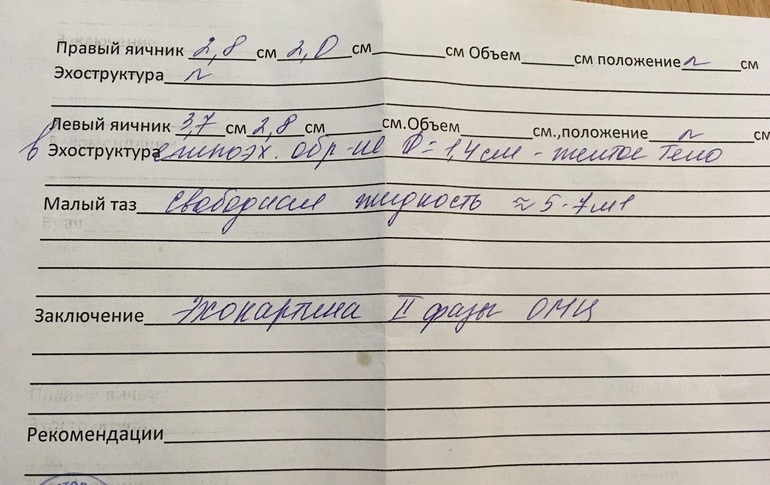 Правый яичник 2,8 см 2,0 см см Объем см положение N см
Эхоструктура N
Левый яичник 3,7 см 2,8 см см.Объем см.,положение N см
в Эхоструктура гипоэх. обр-ие D=1,4см - желтое тело
Малый таз свободная жидкость ≈ 5-7мл
Заключение Эхокартина II фазы ОМЦ
Рекомендации